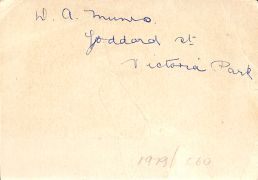 D. A. Munro.
Goddard st
Victoria Park
1979/